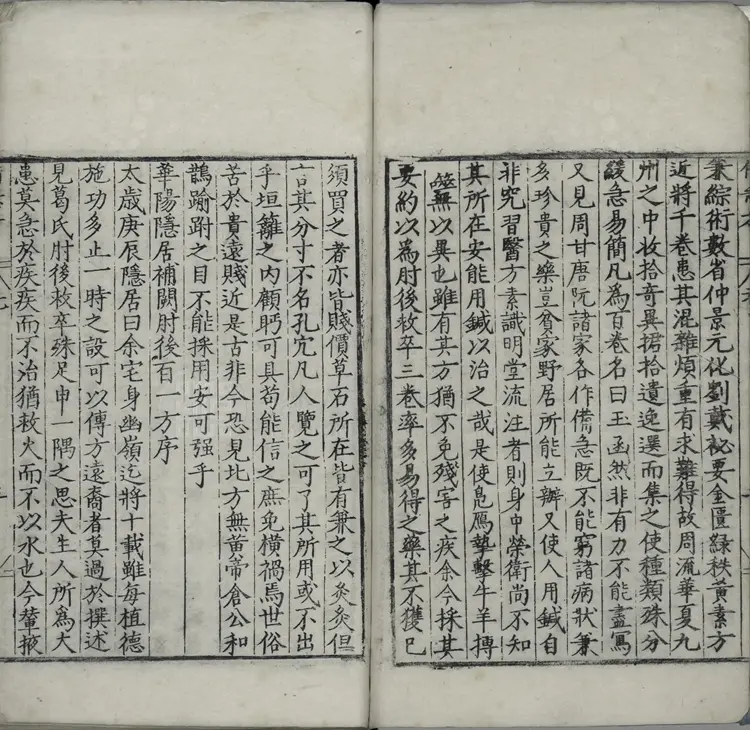 兼綜術數省仲景元化劉戴祕要金匱綠秩黃素方
近將千卷患其混雜煩重有求難得故周流華夏九
州之中收拾奇異捃拾遺逸選而集之使種類殊分
緩急易簡凡爲百卷名曰玉函然非有力不能盡寫
又見周甘唐阮諸家各作備急既不能窮諸病狀兼
多珍貴之藥豈貧家野居所能立辦又使人用鍼自
非究習醫方素識明堂流注者則身中榮衛尚不知
其所在安能用鍼以治之哉是使鳧鴈摯擊牛羊搏
噬無以異也雖有其方猶不免殘害之疾余今採其
要約以爲肘後救卒三卷率多易得之藥其不獲已
須買之者亦皆賤價草石所在皆有兼之以灸灸但
言其分寸不名孔穴凡人覽之可了其所用或不出
乎垣籬之內顧眄可具苟能信之庶免橫禍焉世俗
苦於貴遠賤近是古非今恐見此方無黃帝倉公和
鵲踰跗之目不能採用安可强乎
華陽隱居補闕肘後百一方序
太歲庚辰隱居曰余宅身幽嶺迄將十載雖每植德
施功多止一時之設可以傳方遠裔者莫過於撰述
見葛氏肘後救卒殊足申一隅之思夫生人所爲大
患莫急於疾疾而不治猶救火而不以水也今輦掖